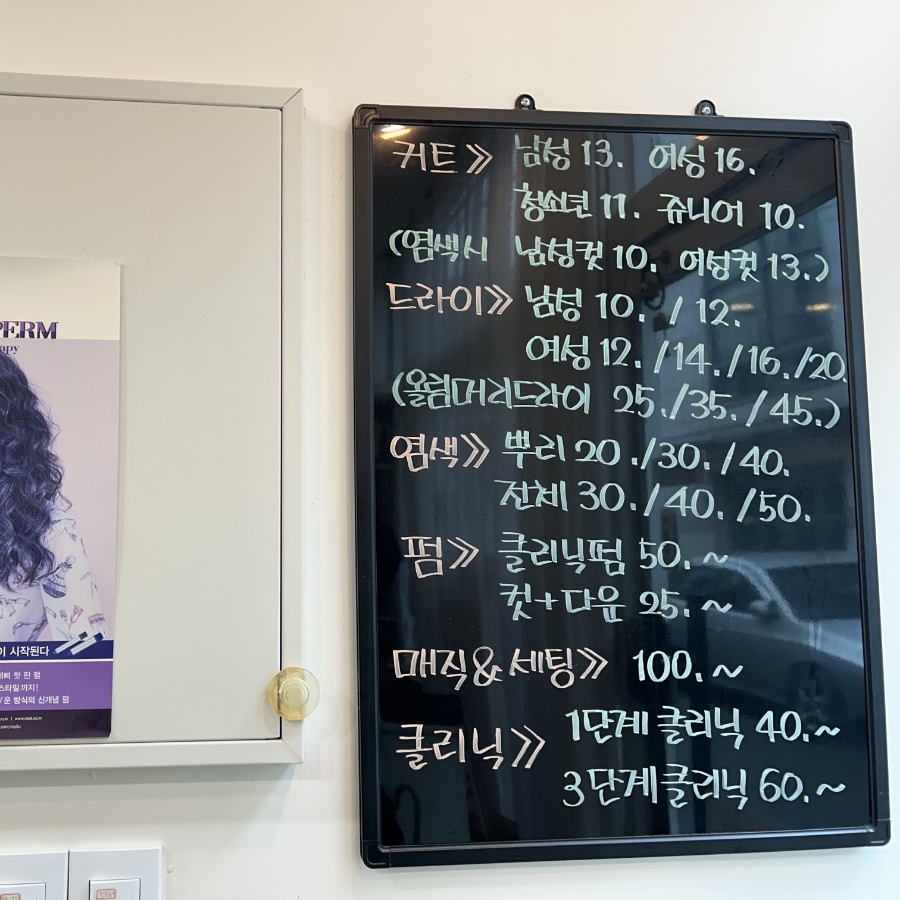 커트》 남성 13. 여성 16.
청소년 11. 쥬니어 10.
(염색시 남성컷 10. 여성컷 13.)
드라이》 남성 10. / 12.
여성 12. /14. /16. /20.
(올림머리드라이 25./35. / 45.)
염색》 뿌리 20 ./30. / 40.
전체 30. / 40. /50.
펌》 클리닉펌 50. ~
컷+다운 25. ~
매직&세팅》 100. ~
클리닉》 1단계 클리닉 40.~
3단계 클리닉 60.~
PERM
apy
이 시작된다
핫 핀 펌
스타일 까지!
운 방식의 신개념 펌